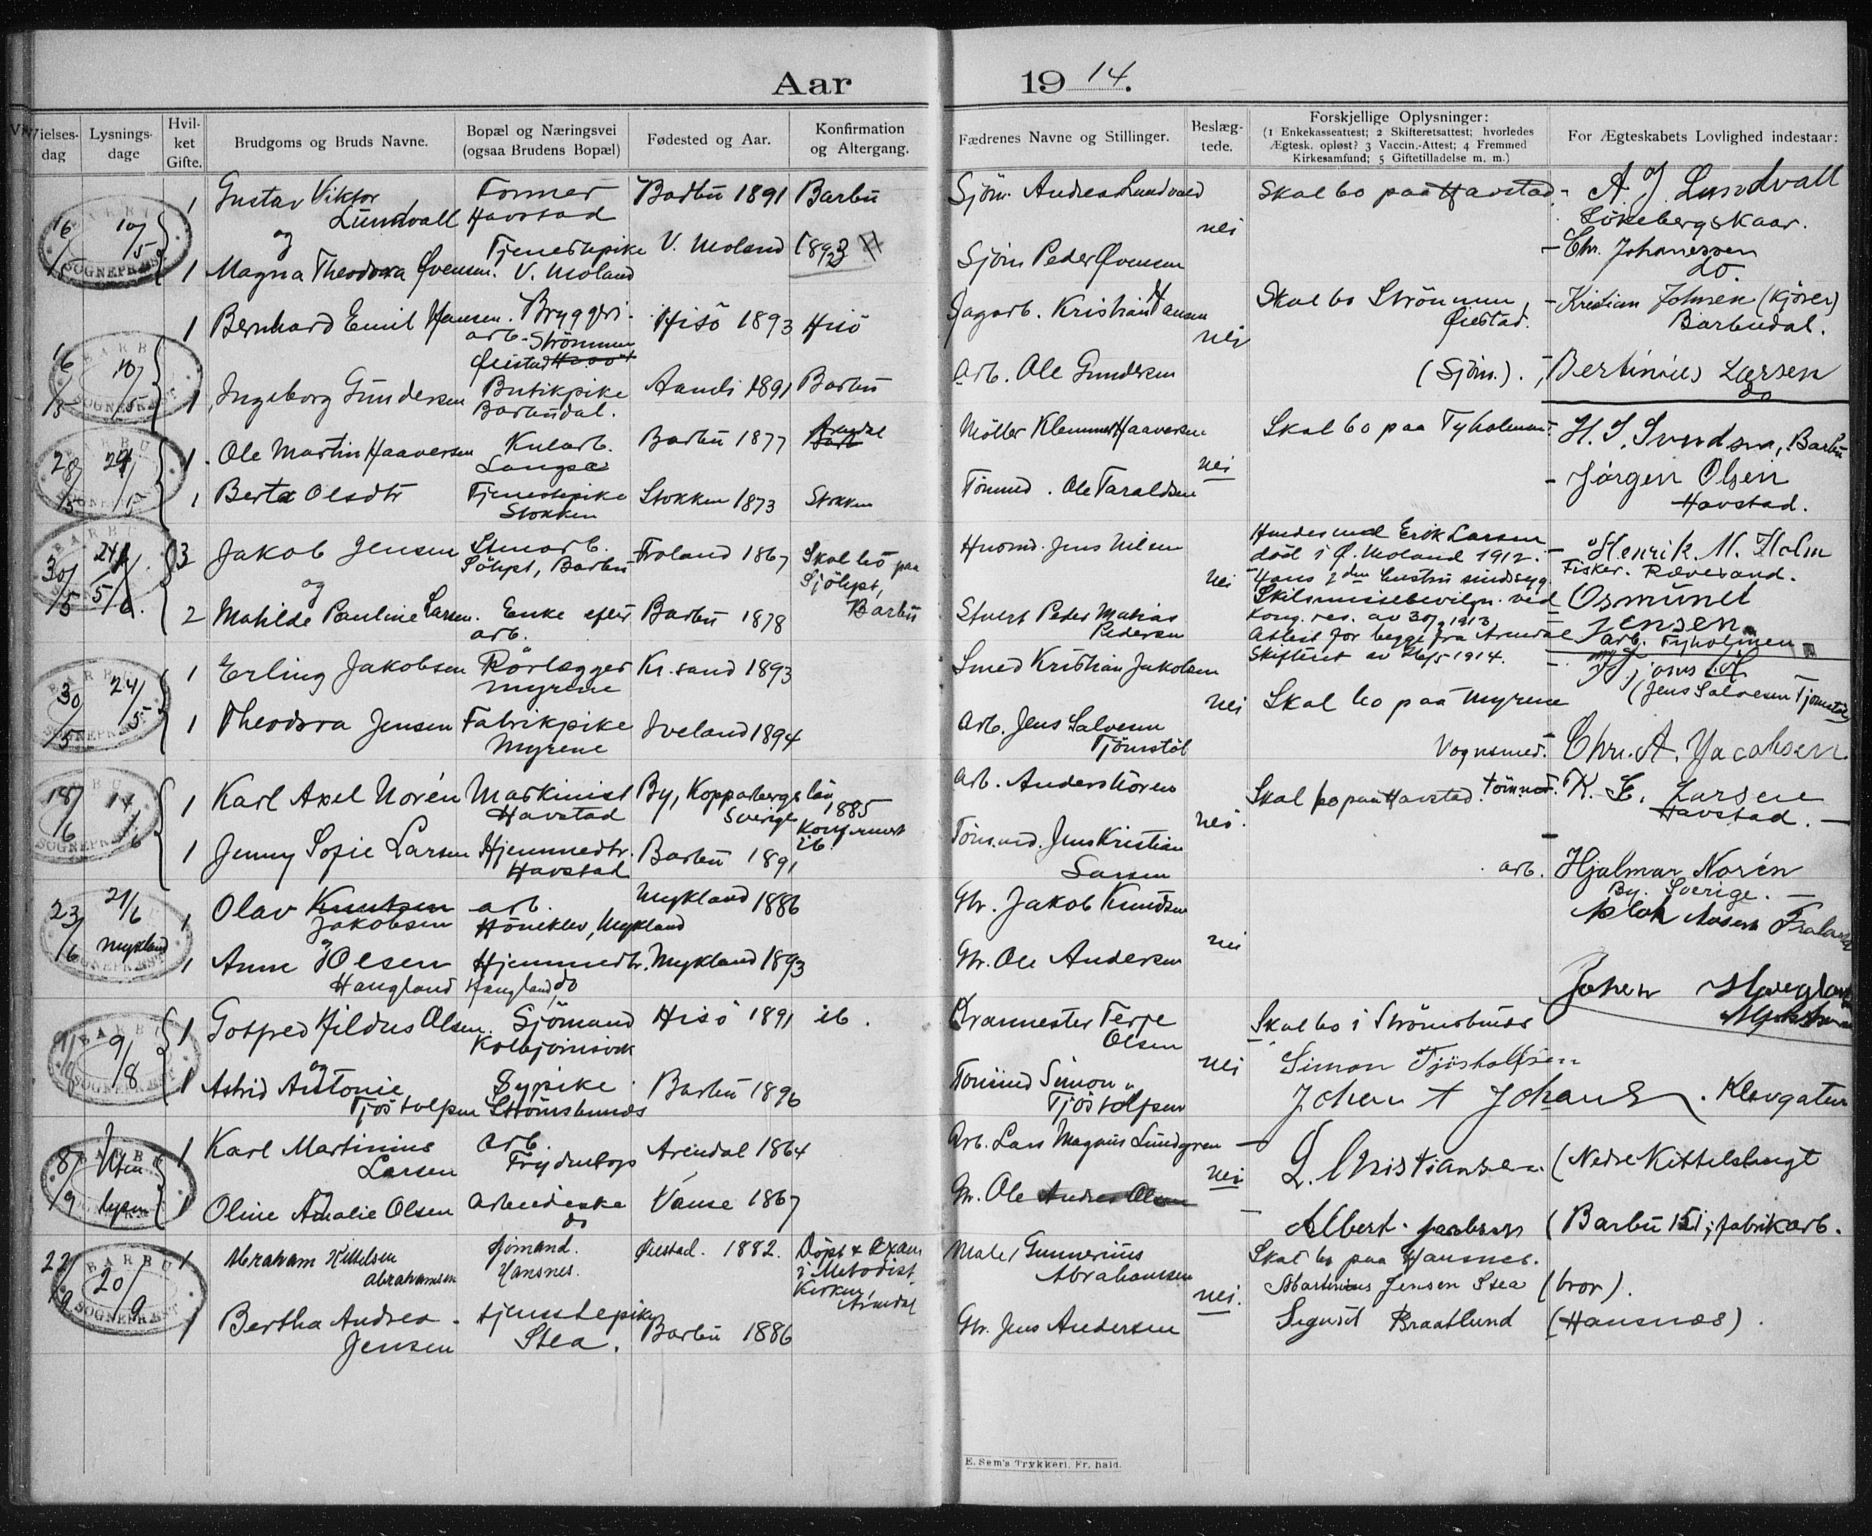 Aar 1914.
Vielses-
dag
Lysnings-
dage
Hvil-
ket
Gifte.
Brudgoms og Bruds Navne.
Bopæl og Næringsvei
(ogsaa Brudens Bopæl)
Fødested og Aar.
Konfirmation
og Altergang.
Fædrenes Navne og Stillinger.
Beslæg-
tede.
Forskjellige Oplysninger:
(1 Enkekasseattest; 2 Skifteretsattest; hvorledes
Ægtesk. opløst? 3 Vaccin.-Attest; 4 Fremmed
Kirkesamfund; 5 Giftetilladelse m. m.)
For Ægteskabets Lovlighed indestaar:
BARBU SOGNEPRÆST
16/5 10/5 1 Gustav Viktor
Lundvall
Former
Havstad
Barbu 1891 Barbu
Sjöm. Andreas Lundvald
nei
Skal bo paa Havstad
A J Lundvall
Chr. Johanessen
do
og
1 Magna Theodora Øvensen.
Tjenestepike
V. Moland
V. Moland 1893
Sjöm Peder Øvensen
16/5 10/5 1 Bernhard Emil Hansen.
Bryggeri-
arb. Strömmen
Øiestad
Hisö 1893 Hisö
Dagarb. Kristian Hansen
nei
Skal bo Strömmen,
Øiestad.
Kristian Johsen (Kjörer)
Barbudal.
1 Ingeborg Gundersen
Butikpike
Barbudal.
Aamli 1891 Barbu
Arb. Ole Gundersen
(Sjöm.).
Bertinius Larsen
do
28/5 1 Ole Martin Haaversen
Kularb.
Langsæ
Barbu 1877 Arendal
Möller Klemmet Haaversen
nei
Skal bo paa Tyholmen.
H. J. Svendsen, Barbu
1 Berta Olsdtr
Tjenestepike
Stokken
Stokken 1873 Stokken
Tömmd. Ole Taraldsen
Jörgen Olsen
Havstad.
30/5 3 Jakob Jensen
Stenarb.
Barbu
Froland 1867
Skal bo paa
Barbu
Jens Nilsen
nei
Hendes md Erik Larsen
död i Ø. Moland 1912.
Skilsmissebevilgn. ved
Kong. res. av
Attest for begge fra Arendal
Skifteret av 26/5 1914.
Henrik M. Holm
Fisker. Rævesand.
og
2 Matilde Pauline Larsen.
Enke efter
arb.
Barbu 1878
Stuert Peder Matias
Pedersen
Osmund
Jensen
arb. Tyholmen
30/5 24/5 1 Erling Jakobsen
Rörlægger
Myrene
Kr.sand 1893
Smed Kristian Jakobsen
nei
Skal bo paa Myrene
(Jens Salvesen Tjömstöl)
1 Theodora Jensen
Fabrikpike
Myrene
Iveland 1894
Arb. Jens Salvesen
Tjömstöl
Vognsmed.
Chr. A. Jacobsen
18/6 14/6 1 Karl Axel Norén
Maskinist
Havstad
By, Kopparbergs län,
Sverige 1885
Konfirmert
ib.
Arb. Anders Noren
nei.
Skal bo paa Havstad.
Tömmd. K. E. Larsen
Havstad.
1 Jenny Sofie Larsen
Hjemmedtr.
Havstad
Barbu 1891
Tömmd. Jens Kristian
Larsen
arb. Hjalmar Norén
By. Sverige.
23/6 21/6
Mykland
1 Olav Knutsen
Jakobsen
arb.
Höneklev, Mykland
Mykland 1886
Gbr. Jakob Knudsen
nei
og
1 Anne Olsen
Haugland
Hjemmedtr.
Haugland, do
Mykland 1893
Gbr. Ole Andersen
Johan
9/8 1 Gotfred Hildus Olsen.
Sjömand
Kolbjörnsvik
Hisö 1891 ib.
Branmester Terje
Olsen
nei
Skal bo i Strömsbunes
Simon Tjöstolfsen
og
1 Astrid Antonie
Tjöstolfsen
Sypike
Strömsbunes
Barbu 1896
Tömmd Simon
Tjöstolfsen
Johan A Johans. Klevgaten
8/9 Uten
lysn
1 Karl Martinius
Larsen
arb.
Arendal 1864
Arb. Lars Magnus Lundgren
nei
L. Christiansen. (Nedre Kittelsbugt
1 Oline Amalie Olsen
Arbeiderske
do
Vanse 1867
Gbr. Ole Andreas Olsen
Albert Jacobsen (Barbu 151; fabrikarb.
22/9 20/9 1 Abraham Kittelsen
Abrahamsen
Sjömand.
Hansnes.
Øiestad. 1882.
Döpt &
i Metodist
Kirken,
Arendal
Maler Gunnerius
Abrahamsen
nei.
Skal bo paa Hansnes.
Martinius Jensen Stea (bror).
1 Bertha Andrea
Jensen
tjenstepike
Stea.
Barbu 1886
Gbr. Jens Andersen
Sigurd Braatlund (Hansnæs).
E. Sem's Trykkeri, Fr.hald.